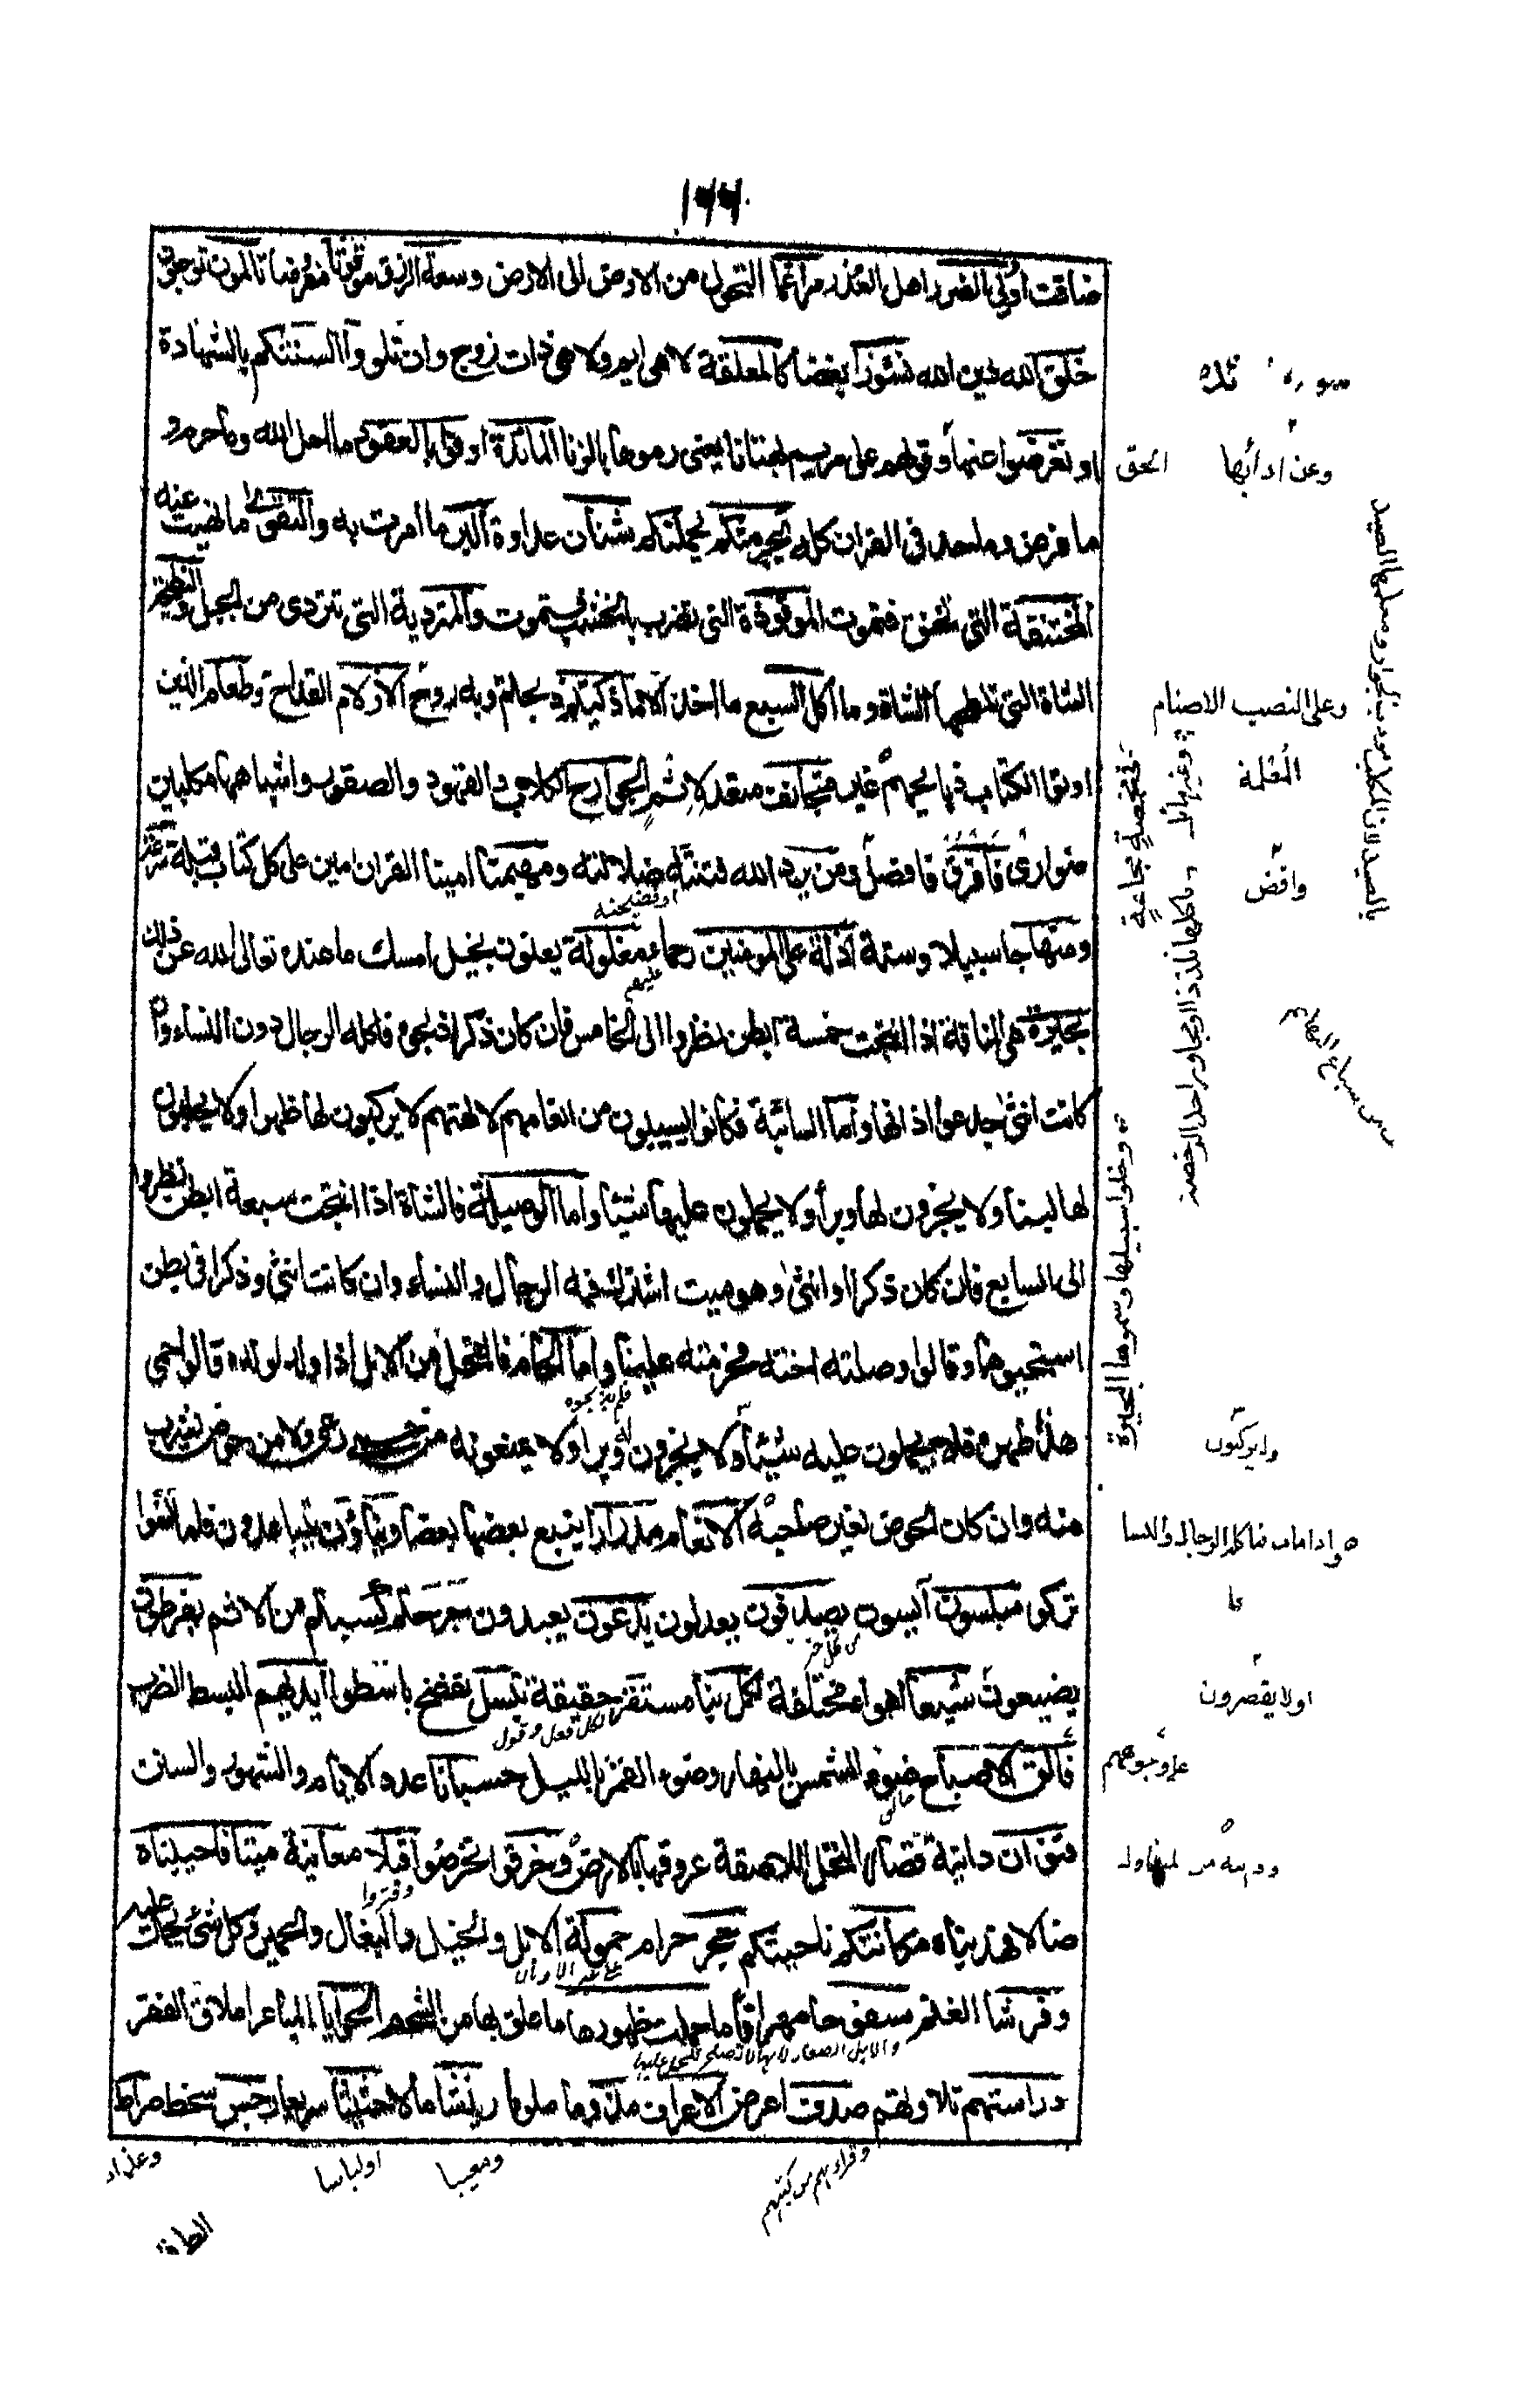 ضاقت أولي الضرر اهل العذر مراغما التحول من الارض الى الارض وسعة الرزق موقوتا مفروضا تالمون توجعون
خلق الله دين الله نشوزا بغضا كالمعلقة لا هى ايم ولا هى ذات زوج وان تلووا السنتكم بالشهادة
او تعرضوا عنها وقولهم على مريم بهتانا يعنى رموها بالزنا المائدة اوفوا بالعقود ما احل الله وما حرم و
ما فرض وما حد فى القران كله يجرمنكم يحملنكم شنأن عداوة البر ما امرت به والتقوى ما نهيت عنه
المنخنقة التى تخنق فتموت الموقوذة التى تضرب بالخشب فتموت والمتردية التى تتردى من الجبل والنطيحة
الشاة التى تنطحها الشاة وما اكل السبع ما اخذ الا ما ذكيتم ذبحتم وبه روح الازلام القداح وطعام الذين
اوتوا الكتاب ذبايحهم غير متجانف متعد لاثم الجوارح الكلاب والفهود والصقور واشباهها مكلبين
ضوارى فافرق فافصل ومن يرد الله فتنته ضلالته ومهيمنا امينا القران امين على كل كتاب قبله شرعة
ومنهاجا سبيلا وسنة اذلة على المومنين رحماء مغلولة يعنون بخيل امسك ما عنده تعالى الله عن ذلك
بحيرة هى الناقة اذا انتجت خمسة ابطن نظروا الى الخامس فان كان ذكرا ذبحوه فاكله الرجال دون النساء وان
كانت انثى جدعوا اذانها واما السائبة فكانوا يسيبون من انعامهم لالهتهم لا يركبون لها ظهرا ولا يحلبون
لها لبنا ولا يجزون لها وبرا ولا يحملون عليها شيئا واما الوصيلة فالشاة اذا انتجت سبعة ابطن نظروا
الى السابع فان كان ذكرا او انثى وهو ميت اشترك فيه الرجال والنساء وان كانت انثى وذكرا فى بطن
استحيوها وقالوا وصلته اخته فحرمته علينا واما الحام فالفحل من الابل اذا ولد لولده قالوا حمى
هذا ظهره فلا يحملون عليه شيئا ولا يجزون له وبرا ولا يمنعونه من رعى ولا من حوض يشرب
منه وان كان الحوض لغير صاحبه الانعام مدرارا يتبع بعضها بعضا وينأون يتباعدون فلما نسوا
تركوا مبلسون آيسون يصدفون يعدلون يدعون يعبدون جرحتم كسبتم من الاثم يفرطون
يضيعون شيعا اهواء مختلفة لكل نبأ مستقر حقيقة تبسل تفضح باسطوا ايديهم البسط الضرب
فالق الاصباح ضوء الشمس بالنهار وضوء القمر بالليل حسبانا عدد الايام والشهور والسنن
قنوان دانية قصار النخل اللاصقة عروقها بالارض وخرقوا تخرصوا قبلا معاينة ميتا فاحييناه
ضالا فهديناه مكانتكم ناحيتكم حجر حرام حمولة الابل والخيل والبغال والحمير وكل شئ يحمل عليه
وفرشا الغنم مسفوحا مهراقا ما حملت ظهورها ما علق بها من الشحم الحوايا المباعر املاق الفقر
دراستهم تلاوتهم صدف اعرض الاعراف مذوما ملوما ريشا مالا حثيثا سريعا رجس سخط صراط
وعن ادائها
الحق
وعلى النصب الاصنام
مخمصة مجاعة
وخلوا سبيلها وسموها البحيرة
او لا يقصرون
لكل فعل وقول
على وجوههم
والابل الصغار لانها لا تصلح للحمل عليها